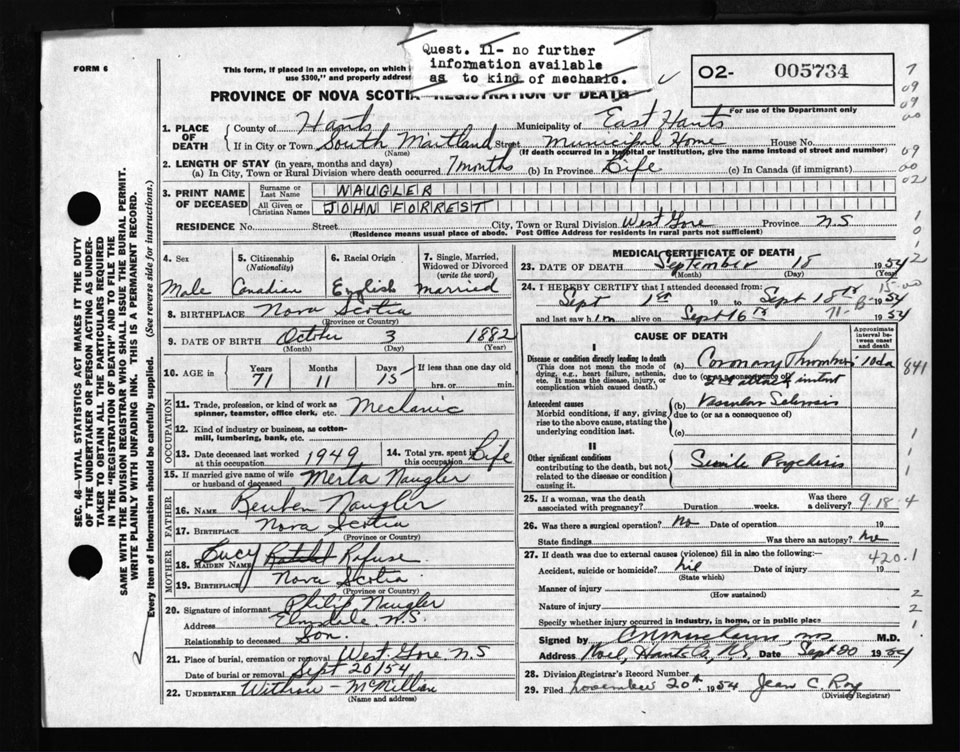 FORM 6
This form, if placed in an envelope, on which i
use $300," and properly address
Quest. 11- no further
information available
as to kind of mechanic.
O2- 005734
For use of the Department only
PROVINCE OF NOVA SCOTIA REGISTRATION OF DEATH
1. PLACE OF DEATH { County of Hants Municipality of East Hants
If in City or Town South Maitland Street Municipal Home House No.
(Name) (If death occurred in a hospital or institution, give the name instead of street and number)
2. LENGTH OF STAY (in years, months and days)
(a) In City, Town or Rural Division where death occurred 7 months (b) In Province Life (c) In Canada (if immigrant)
3. PRINT NAME OF DECEASED { Surname or Last Name NAUGLER
All Given or Christian Names JOHN FORREST
RESIDENCE No. Street City, Town or Rural Division West Gore Province N.S
(Residence means usual place of abode. Post Office Address for residents in rural parts not sufficient)
4. Sex Male
5. Citizenship (Nationality) Canadian
6. Racial Origin English
7. Single, Married, Widowed or Divorced (write the word) Married
8. BIRTHPLACE Nova Scotia
(Province or Country)
9. DATE OF BIRTH October 3 1882
(Month) (Day) (Year)
10. AGE in Years 71 Months 11 Days 15 If less than one day old
hrs. or min.
OCCUPATION
11. Trade, profession, or kind of work as spinner, teamster, office clerk, etc. Mechanic
12. Kind of industry or business, as cotton-mill, lumbering, bank, etc.
13. Date deceased last worked at this occupation 1949
14. Total yrs. spent in this occupation Life
15. If married give name of wife or husband of deceased Merta Naugler
FATHER
16. NAME Reuben Naugler
17. BIRTHPLACE Nova Scotia
(Province or Country)
MOTHER
18. MAIDEN NAME Lucy Rafuse
19. BIRTHPLACE Nova Scotia
(Province or Country)
20. Signature of informant Philip Naugler
Address Elmsdale N.S.
Relationship to deceased Son.
21. Place of burial, cremation or removal West Gore N.S
Date of burial or removal Sept 20/54
22. UNDERTAKER Withrow - McMillan
(Name and address)
MEDICAL CERTIFICATE OF DEATH
23. DATE OF DEATH September 18 1954
(Month) (Day) (Year)
24. I HEREBY CERTIFY that I attended deceased from:
Sept 1st 19 to Sept 18th 1954
and last saw him alive on Sept 16th 1954
CAUSE OF DEATH
Approximate interval between onset and death
I
Disease or condition directly leading to death
(This does not mean the mode of dying, e.g., heart failure, asthenia, etc. It means the disease, injury, or complication which caused death.)
(a) Coronary Thrombosis 10 da
due to (or as a consequence of)
Antecedent causes
Morbid conditions, if any, giving rise to the above cause, stating the underlying condition last.
(b) Vascular Sclerosis
due to (or as a consequence of)
(c)
II
Other significant conditions
contributing to the death, but not related to the disease or condition causing it.
Senile Psychosis
25. If a woman, was the death associated with pregnancy? Duration weeks. Was there a delivery?
26. Was there a surgical operation? No Date of operation 19
State findings Was there an autopsy? No
27. If death was due to external causes (violence) fill in also the following:-
Accident, suicide or homicide? nil Date of injury 19
(State which)
Manner of injury
(How sustained)
Nature of injury
Specify whether injury occurred in industry, in home, or in public place
Signed by M.D.
Address Noel, Hants Co, N.S. Date Sept 20 1954
28. Division Registrar's Record Number
29. Filed November 20th 1954 Jean C. Roy
(Division Registrar)
SEC. 46—VITAL STATISTICS ACT MAKES IT THE DUTY
OF THE UNDERTAKER OR PERSON ACTING AS UNDER-
TAKER TO OBTAIN ALL THE PARTICULARS REQUIRED
IN THE "REGISTRATION OF DEATH" AND TO FILE THE
SAME WITH THE DIVISION REGISTRAR WHO SHALL ISSUE THE BURIAL PERMIT.
WRITE PLAINLY WITH UNFADING INK. THIS IS A PERMANENT RECORD.
Every item of information should be carefully supplied. (See reverse side for instructions.)
841
9-18-4
420.1